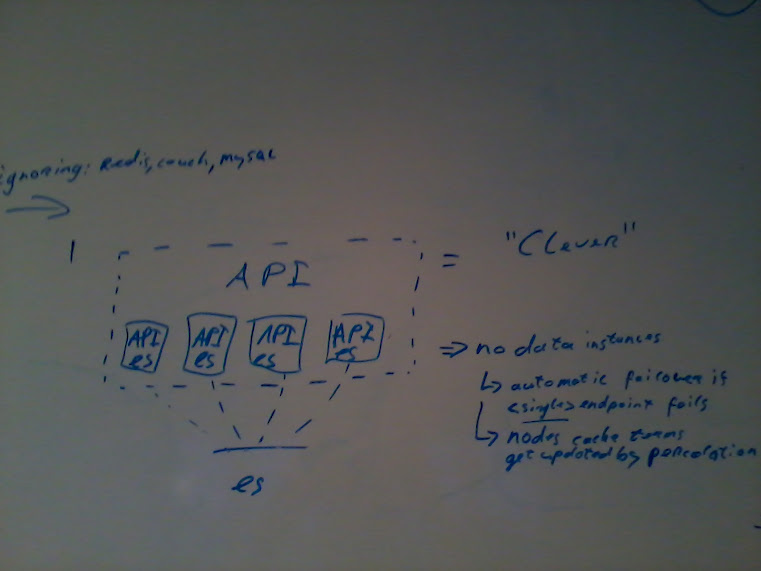 ignoring: Redis, couch, mysql
1
API
= "Clever"
API API API API
es es es es
=> no data instances
↳ automatic failover if
<single> endpoint fails
↳ nodes cache terms
get updated by percolation
es